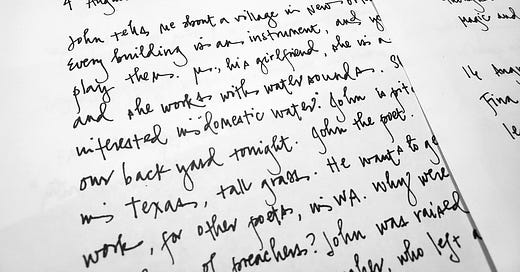 4 August
John tells me about a village in New
every building is an instrument, and
play them. M., his girlfriend, she is a
and she works with water sounds.
interested in "domestic water." John is
our back yard tonight. John the poet.
in Texas, tall grass. He wants to
work, for other poets, in WA. Why were
of preachers? John was raised
who left a
Magic and
14 August